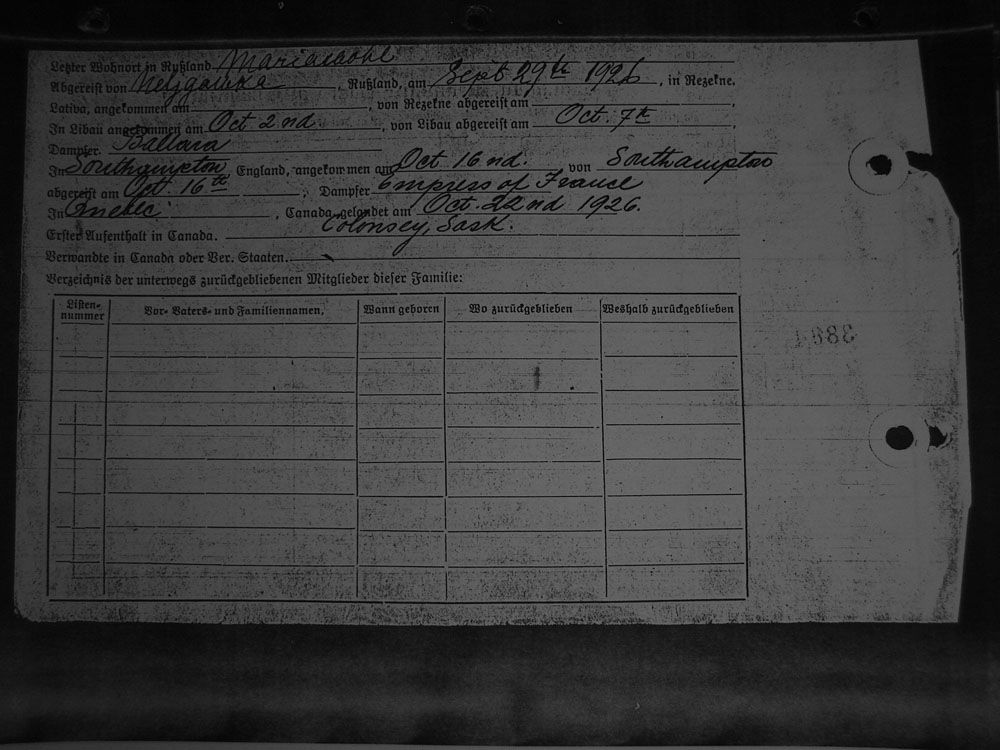 Letzter Wohnort in Rußland Mariawohl
Abgereist von Neljgowka, Rußland, am Sept 29th 1926, in Rezekne.
Lativa, angekommen am, von Rezekne abgereist am
In Libau angekommen am Oct 2nd, von Libau abgereist am Oct. 7th.
Dampfer. Baltara
In Southampton England, angekommen am Oct. 16nd. von Southampton
abgereist am Oct. 16th, Dampfer Empress of France
In Quebec, Canada gelandet am Oct. 22nd 1926.
Erster Aufenthalt in Canada. Colonsey, Sask.
Verwandte in Canada oder Ver. Staaten.
Verzeichnis der unterwegs zurückgebliebenen Mitglieder dieser Familie:
Listen-nummer Vor- Vaters- und Familiennamen, Wann geboren Wo zurückgeblieben Weshalb zurückgeblieben